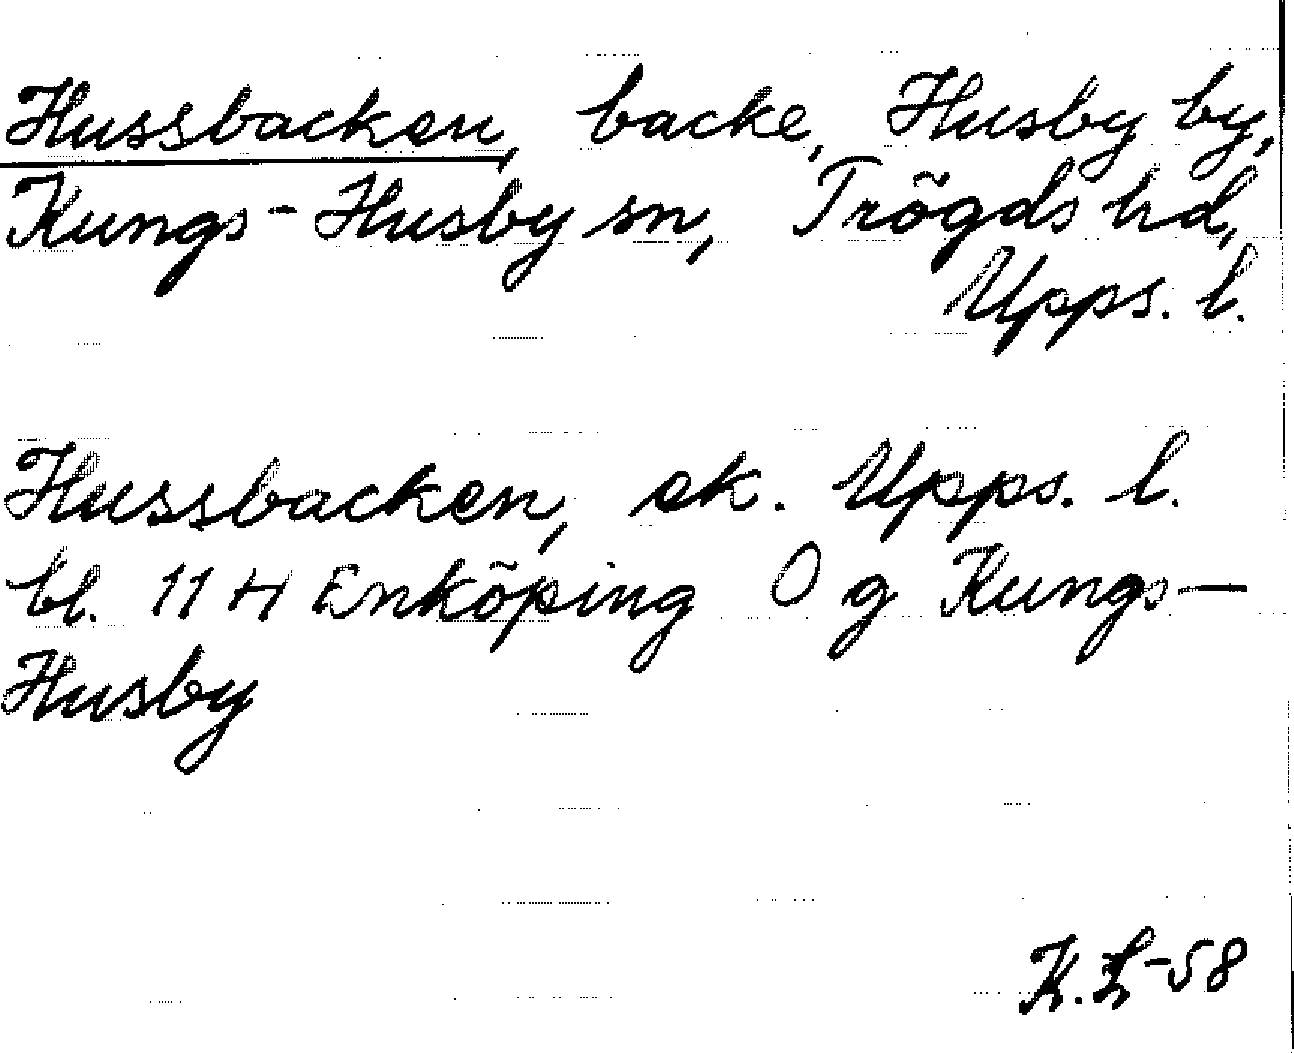 Hussbacken, backe, Husby by,
Kungs-Husby sn, Trögds hd,
Upps. l.
Hussbacken, ek. Upps. l.
bl. 11 H Enköping 0 g Kungs-
Husby
K.L-58